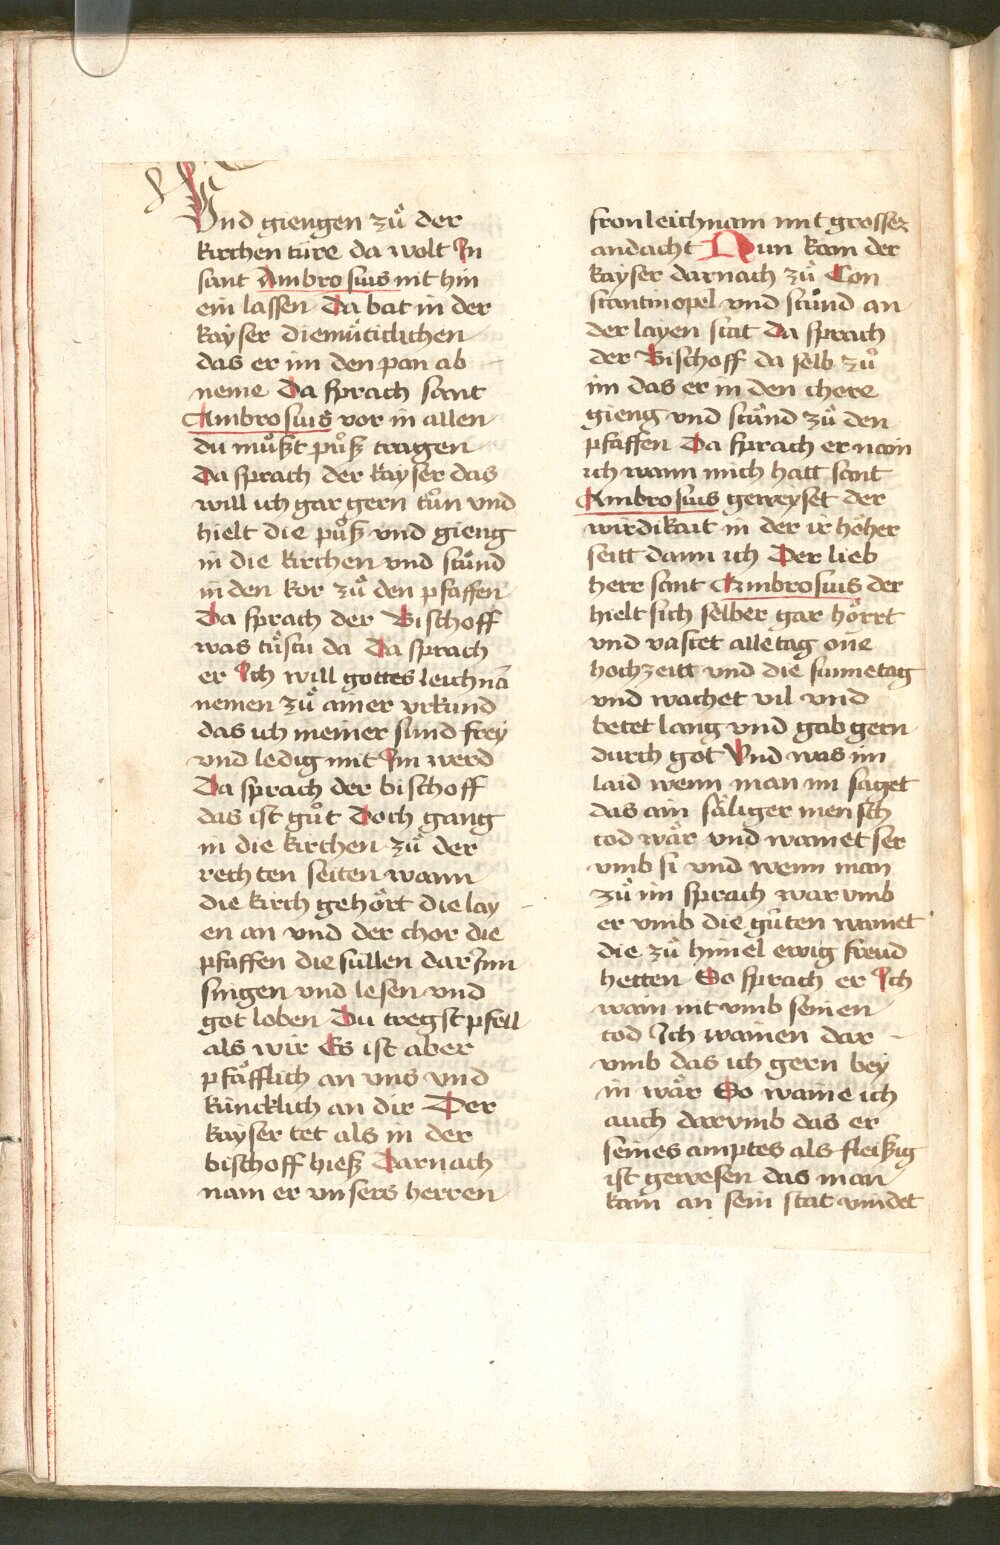 Und giengen zů der
kirchen türe da wolt In
sant Ambrosius nit hin
ein lassen Da bat in der
kayser diemůticlichen
das er im den pan ab
neme Da sprach sant
Ambrosius vor in allen
du můszt půsz tragen
Da sprach der kayser das
will ich gar gern tůn vnd
hielt die půsz vnd gieng
in die kirchen vnd stůnd
in den kor zů den pfaffen
Da sprach der Bischoff
was tůstu da Da sprach
er Ich will gottes leichnā
nemen zů ainer vrkund
das ich meiner sund frey
vnd ledig mit Im werd
Da sprach der bischoff
das ist gůt Doch gang
in die kirchen zů der
rechten seiten wann
die kirch gehört die lay
en an vnd der chor die
pfaffen die süllen darJnn
singen vnd lesen vnd
got loben Du tregst pfell
als wir Es ist aber
pfäfflich an vns vnd
küncklich an dir Der
kayser tet als in der
bischoff hiesz Darnach
nam er vnsers herren
fronleichnam mit grosser
andacht Nun kam der
kayser darnach zů Con
stantinopel vnd stůnd an
der layen stat Da sprach
der Bischoff da selb zů
im das er in den chore
gieng vnd stůnd zů den
pfaffen Da sprach er nain
ich wann mich hatt sant
Ambrosius geweyset der
wirdikait in der ir höher
seitt dann ich Der lieb
herr sant Ambrosius der
hielt sich selber gar hörrt
vnd vastet alle tag one
hochzeitt vnd die sunnetag
vnd wachet vil vnd
betet lang vnd gab gern
durch got Vnd was im
laid wenn man im saget
das ain säliger mensch
tod wär vnd wainet ser
vmb si vnd wenn man
zů im sprach war vmb
er vmb die gůten wainet
die zů himel ewig freud
hetten So sprach er Ich
wain nit vmb seinen
tod Ich wainen dar
vmb das ich gern bey
in wär So waine ich
auch darvmb das er
seines amptes als fleiszig
ist gewesen das man
kain an sein stat vindet